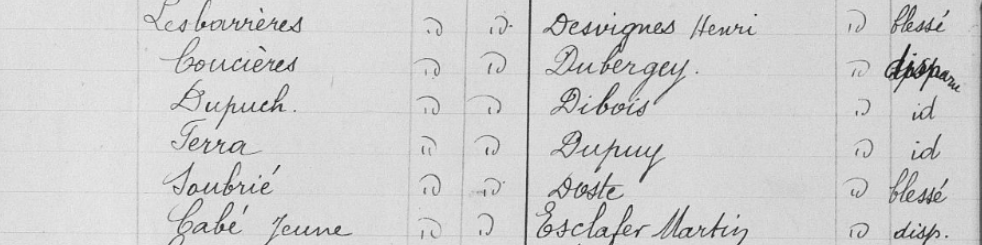 Lesbarrères id id Desvignes Henri id blessé
Coucières id id Dubergey. id disparu
Dupuch. id id Dibois id id
Terra id id Dupuy id id
Soubrié id id Doste id blessé
Cabé Jeune id id Esclafer Martin id disp.